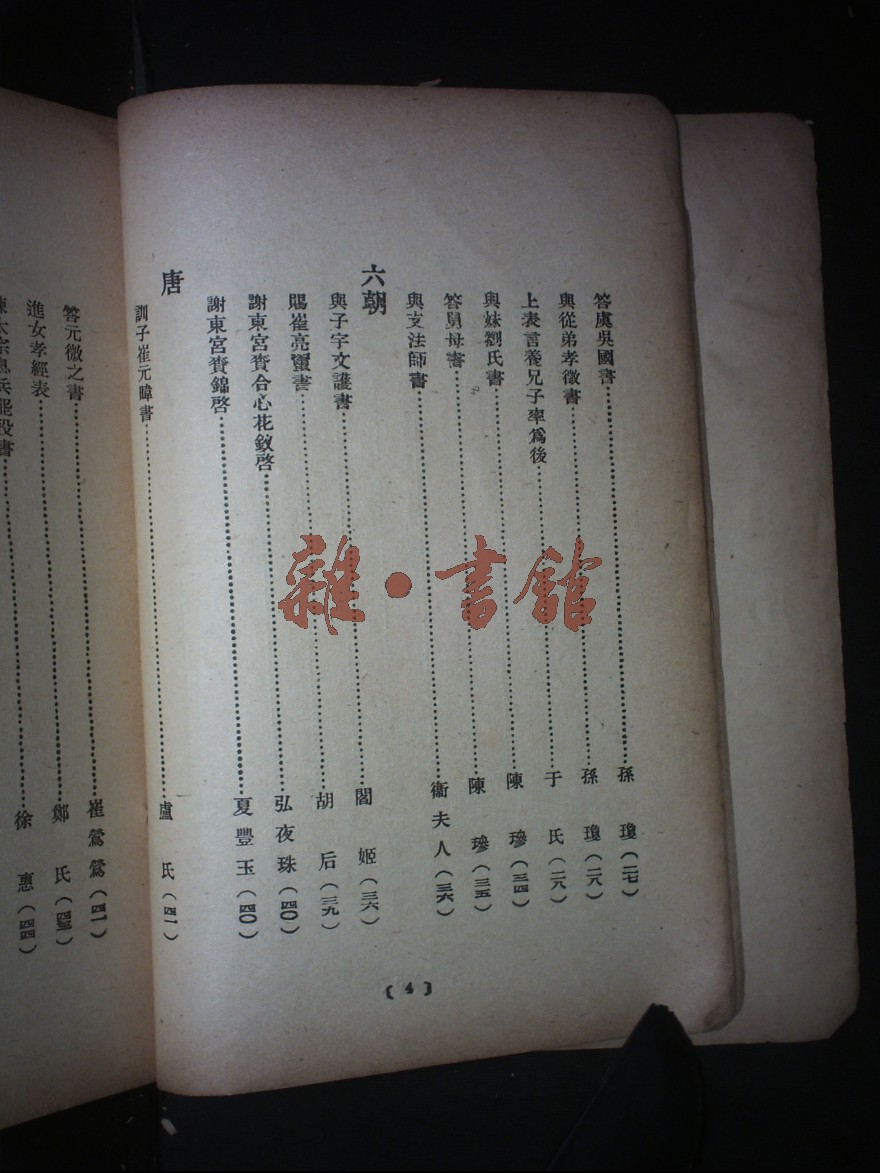 答虞吳國書……孫瓊(二七)
與從弟孝徵書……孫瓊(二八)
上表言養兄子率爲後……于氏(二八)
與妹劉氏書……陳㻸(三四)
答舅母書……陳㻸(三五)
與支法師書……衞夫人(三六)
六朝
與子宇文護書……閻姬(三六)
賜崔亮璽書……胡后(三九)
謝東宮賚合心花釵啓……弘夜珠(四〇)
謝東宮賚錦啓……夏豐玉(四〇)
唐
訓子崔元暐書……盧氏(四一)
答元微之書……崔鶯鶯(四一)
進女孝經表……鄭氏(四三)
太宗 兵罷役書……徐惠(四四)
(4)
雜·書館